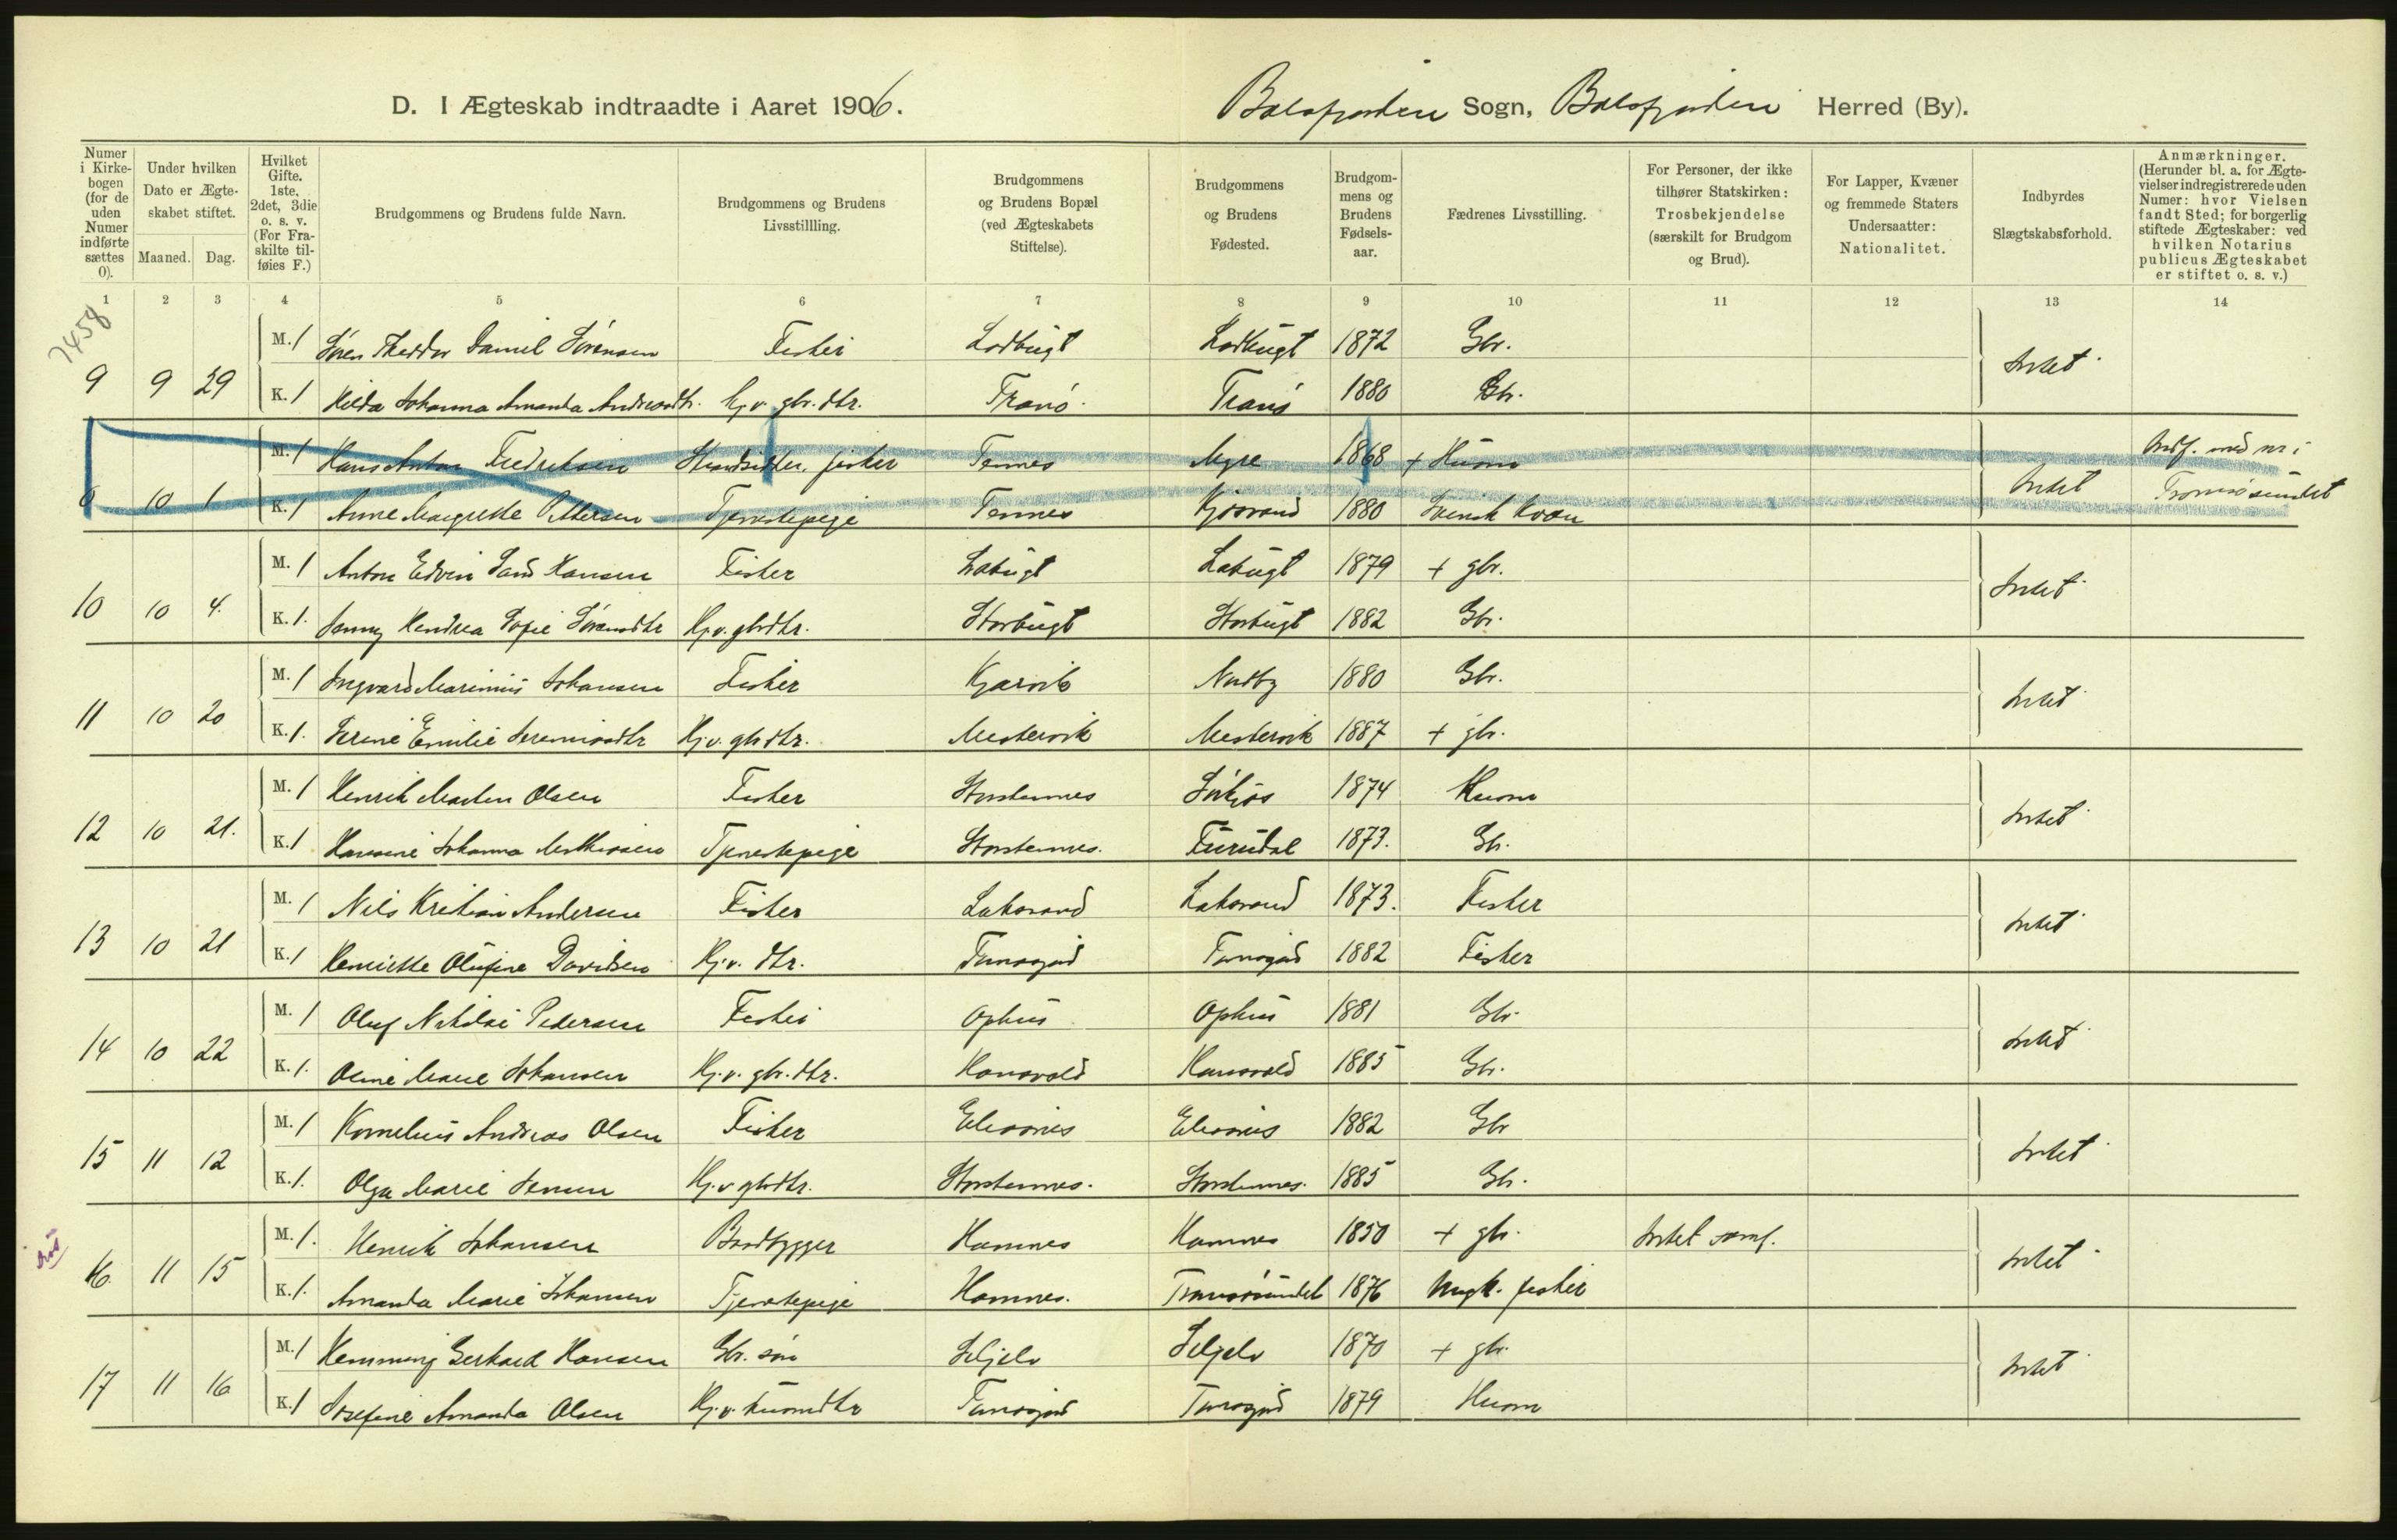 D. I Ægteskab indtraadte i Aaret 1906. Balsfjorden Sogn, Balsfjorden Herred (By).
Numer i Kirke-bogen (for de uden Numer indførte sættes 0).
Under hvilken Dato er Ægte-skabet stiftet.
Maaned. Dag.
Hvilket Gifte. 1ste, 2det, 3die o. s. v. (For Fra-skilte til-føies F.)
Brudgommens og Brudens fulde Navn.
Brudgommens og Brudens Livsstillling.
Brudgommens og Brudens Bopæl (ved Ægteskabets Stiftelse).
Brudgommens og Brudens Fødested.
Brudgom-mens og Brudens Fødsels-aar.
Fædrenes Livsstilling.
For Personer, der ikke tilhører Statskirken: Trosbekjendelse (særskilt for Brudgom og Brud).
For Lapper, Kvæner og fremmede Staters Undersaatter: Nationalitet.
Indbyrdes Slægtskabsforhold.
Anmærkninger. (Herunder bl. a. for Ægte-vielser indregistrerede uden Numer: hvor Vielsen fandt Sted; for borgerlig stiftede Ægteskaber: ved hvilken Notarius publicus Ægteskabet er stiftet o. s. v.)
1 2 3 4 5 6 7 8 9 10 11 12 13 14
7458
M. 1 Sören Theodor Daniel Sörensen Fisker Lodbugt Lodbugt 1872 Gbr.
9 9 29 Intet
K. 1 Hilda Johanna Amanda Andreasdtr. Hj. v. gbr. dtr. Tranö Tranö 1880 Gbr.
M. 1 Hans Anton Fredriksen Strandsidder, fisker Tennes 1868 + Husm Indf. med nr i
0 10 1 Intet Tromsösundet
K. 1 Anne Margrethe Pettersen Tjenestepige Tennes 1880 Svensk Kvæn
M. 1 Anton Edvin Hansen Fisker 1879 + gbr.
10 10 4. Intet
K. 1. Jenny Hendrea Sofie Sörensdtr Hj. v. gbrdtr. Storbugt Storbugt 1882 Gbr.
M. 1 Ingvard Marinius Johansen Fisker Kjarvik Nordby 1880 Gbr.
11 10 20 Intet
K. 1. Serine Emilie Hj. v. gbrdtr. Mestervik Mestervik 1887 + gbr.
M. 1 Henrik Martin Olsen Fisker Storstennes 1874 Husm
12 10 21. Intet
K. 1 Hansine Johanna Mathisen Tjenestepige Storstennes. Furudal 1873. Gbr.
M. 1 Nils Kristian Andersen Fisker 1873. Fisker
13 10 21 Intet
K. 1 Henriette Olufine Davidsen Hj. v. dtr. 1882 Fisker
M. 1 Oluf Nikolai Pedersen Fisker Ophus Ophus 1881 Gbr.
14 10 22 Intet
K. 1. Oline Marie Johansen Hj. v. gbr. dtr. Hansvold Hansvold 1885 Gbr.
M. 1 Kornelius Andreas Olsen Fisker 1882 Gbr
15 11 12 Intet
K. 1. Olga Marie Jensen Hj. v gbrdtr. Storstennes. Storstennes. 1885 Gbr.
M. 1. Henrik Johansen Baadbygger Hamnes Hamnes 1850 + gbr. Intet samf.
16. 11 15 Intet
K. 1. Amanda Marie Johansen Tjenestepige Hamnes. Tromsösundet 1876 Ungk. fisker
M. 1 Hemming Gerhard Hansen Gbr. sön Seljelv Seljelv 1870 + gbr.
17 11 16 Intet
K. 1 Josefine Amanda Olsen Hj. v. husmdtr 1879 Husm